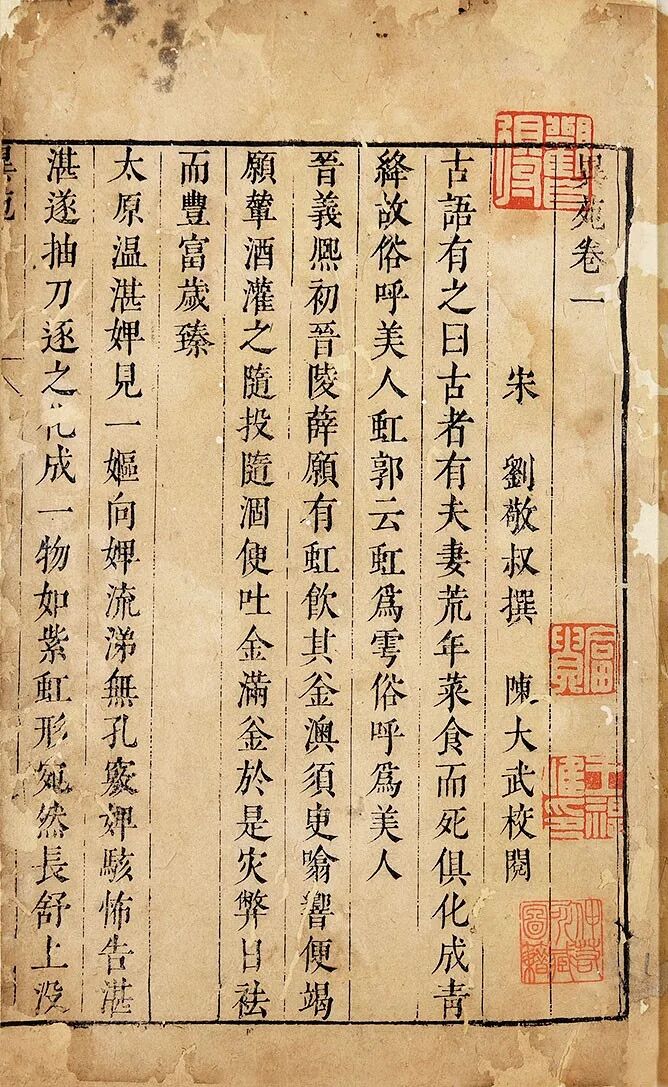 異苑卷一
宋 劉敬叔撰 陳大武校閱
古語有之曰古者有夫妻荒年菜食而死俱化成青
絳故俗呼美人虹郭云虹爲雩俗呼爲美人
晉義熙初晉陵薛願有虹飲其釜澳須臾噏響便竭
願輦酒灌之隨投隨涸便吐金滿釜於是灾弊日祛
而豐富歲臻
太原温湛婢見一嫗向婢流涕無孔竅婢駭怖告湛
湛遂抽刀逐之化成一物如紫虹形宛然長舒上没